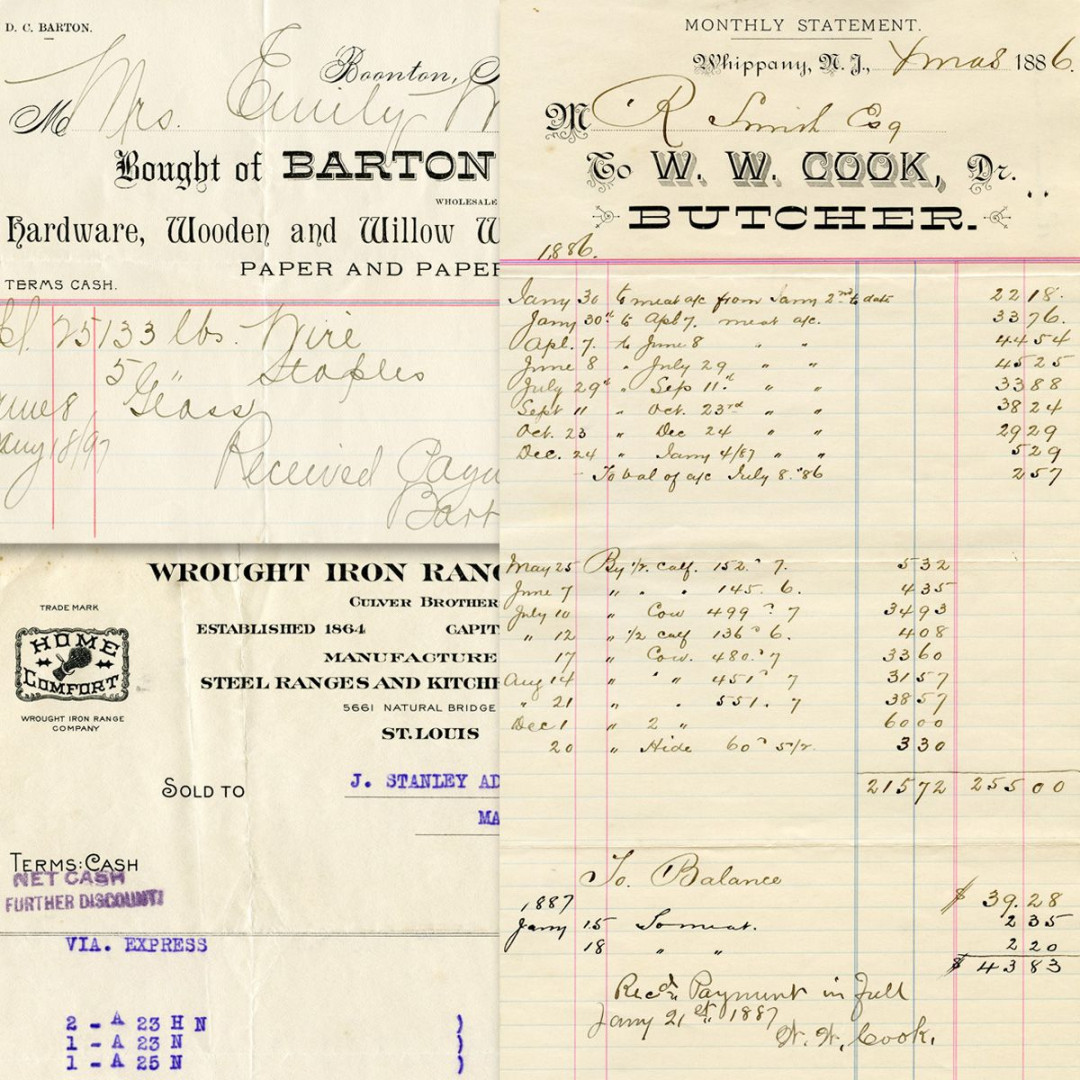 D. C. BARTON.
Boonton,
M Mrs. Emily
Bought of BARTON
WHOLESALE
Hardware, Wooden and Willow W
PAPER AND PAPE
TERMS CASH.
25 133 lbs. Wire
5 " Staples
Glass
18/97
Received Paym
Bart
WROUGHT IRON RANG
CULVER BROTHER
TRADE MARK
ESTABLISHED 1864 CAPIT
HOME COMFORT
MANUFACTURE
STEEL RANGES AND KITCHE
5661 NATURAL BRIDGE
WROUGHT IRON RANGE
COMPANY
ST. LOUIS
SOLD TO J. STANLEY AD
MA
TERMS: CASH
NET CASH
FURTHER DISCOUNT!
VIA. EXPRESS
2 - A 23 H N )
1 - A 23 N )
1 - A 25 N )
MONTHLY STATEMENT.
Whippany, N. J., Xmas 1886.
M R Smith Esq
To W. W. COOK, Dr.
BUTCHER.
1886.
Jany 30 to meat a/c from Jany 2nd to date 22 18.
Jany 30th to Apl 7. meat a/c. 33 76.
Apl. 7. to June 8 " " 44 54
June 8 " July 29 " " 45 25
July 29th " Sep 11th " " 33 88
Sept 11 " Oct. 23rd " " 38 24
Oct. 23 " Dec 24 " " 29 29
Dec. 24 " Jany 4/87 " " 5 29
To bal of a/c July 8. '86 2 57
May 25 By 1/2 calf. 152. 7. 5 32
June 7 " " " 145. 6. 4 35
July 10 " Cow 499 7 34 93
" 12 " 1/2 calf 136 6. 4 08
17 " Cow. 480. 7 33 60
Aug 14 " " " 451 7 31 57
" 21 " " 551. 7 38 57
Dec 1 " 2 " 60 00
20 " Hide 60 5 1/2 3 30
215 72 255 00
To Balance $ 39.28
1887
Jany 15 To meat. 2 35
18 " " 2 20
$ 43 83
Recd. Payment in full
Jany 21st, 1887
W. W. Cook.